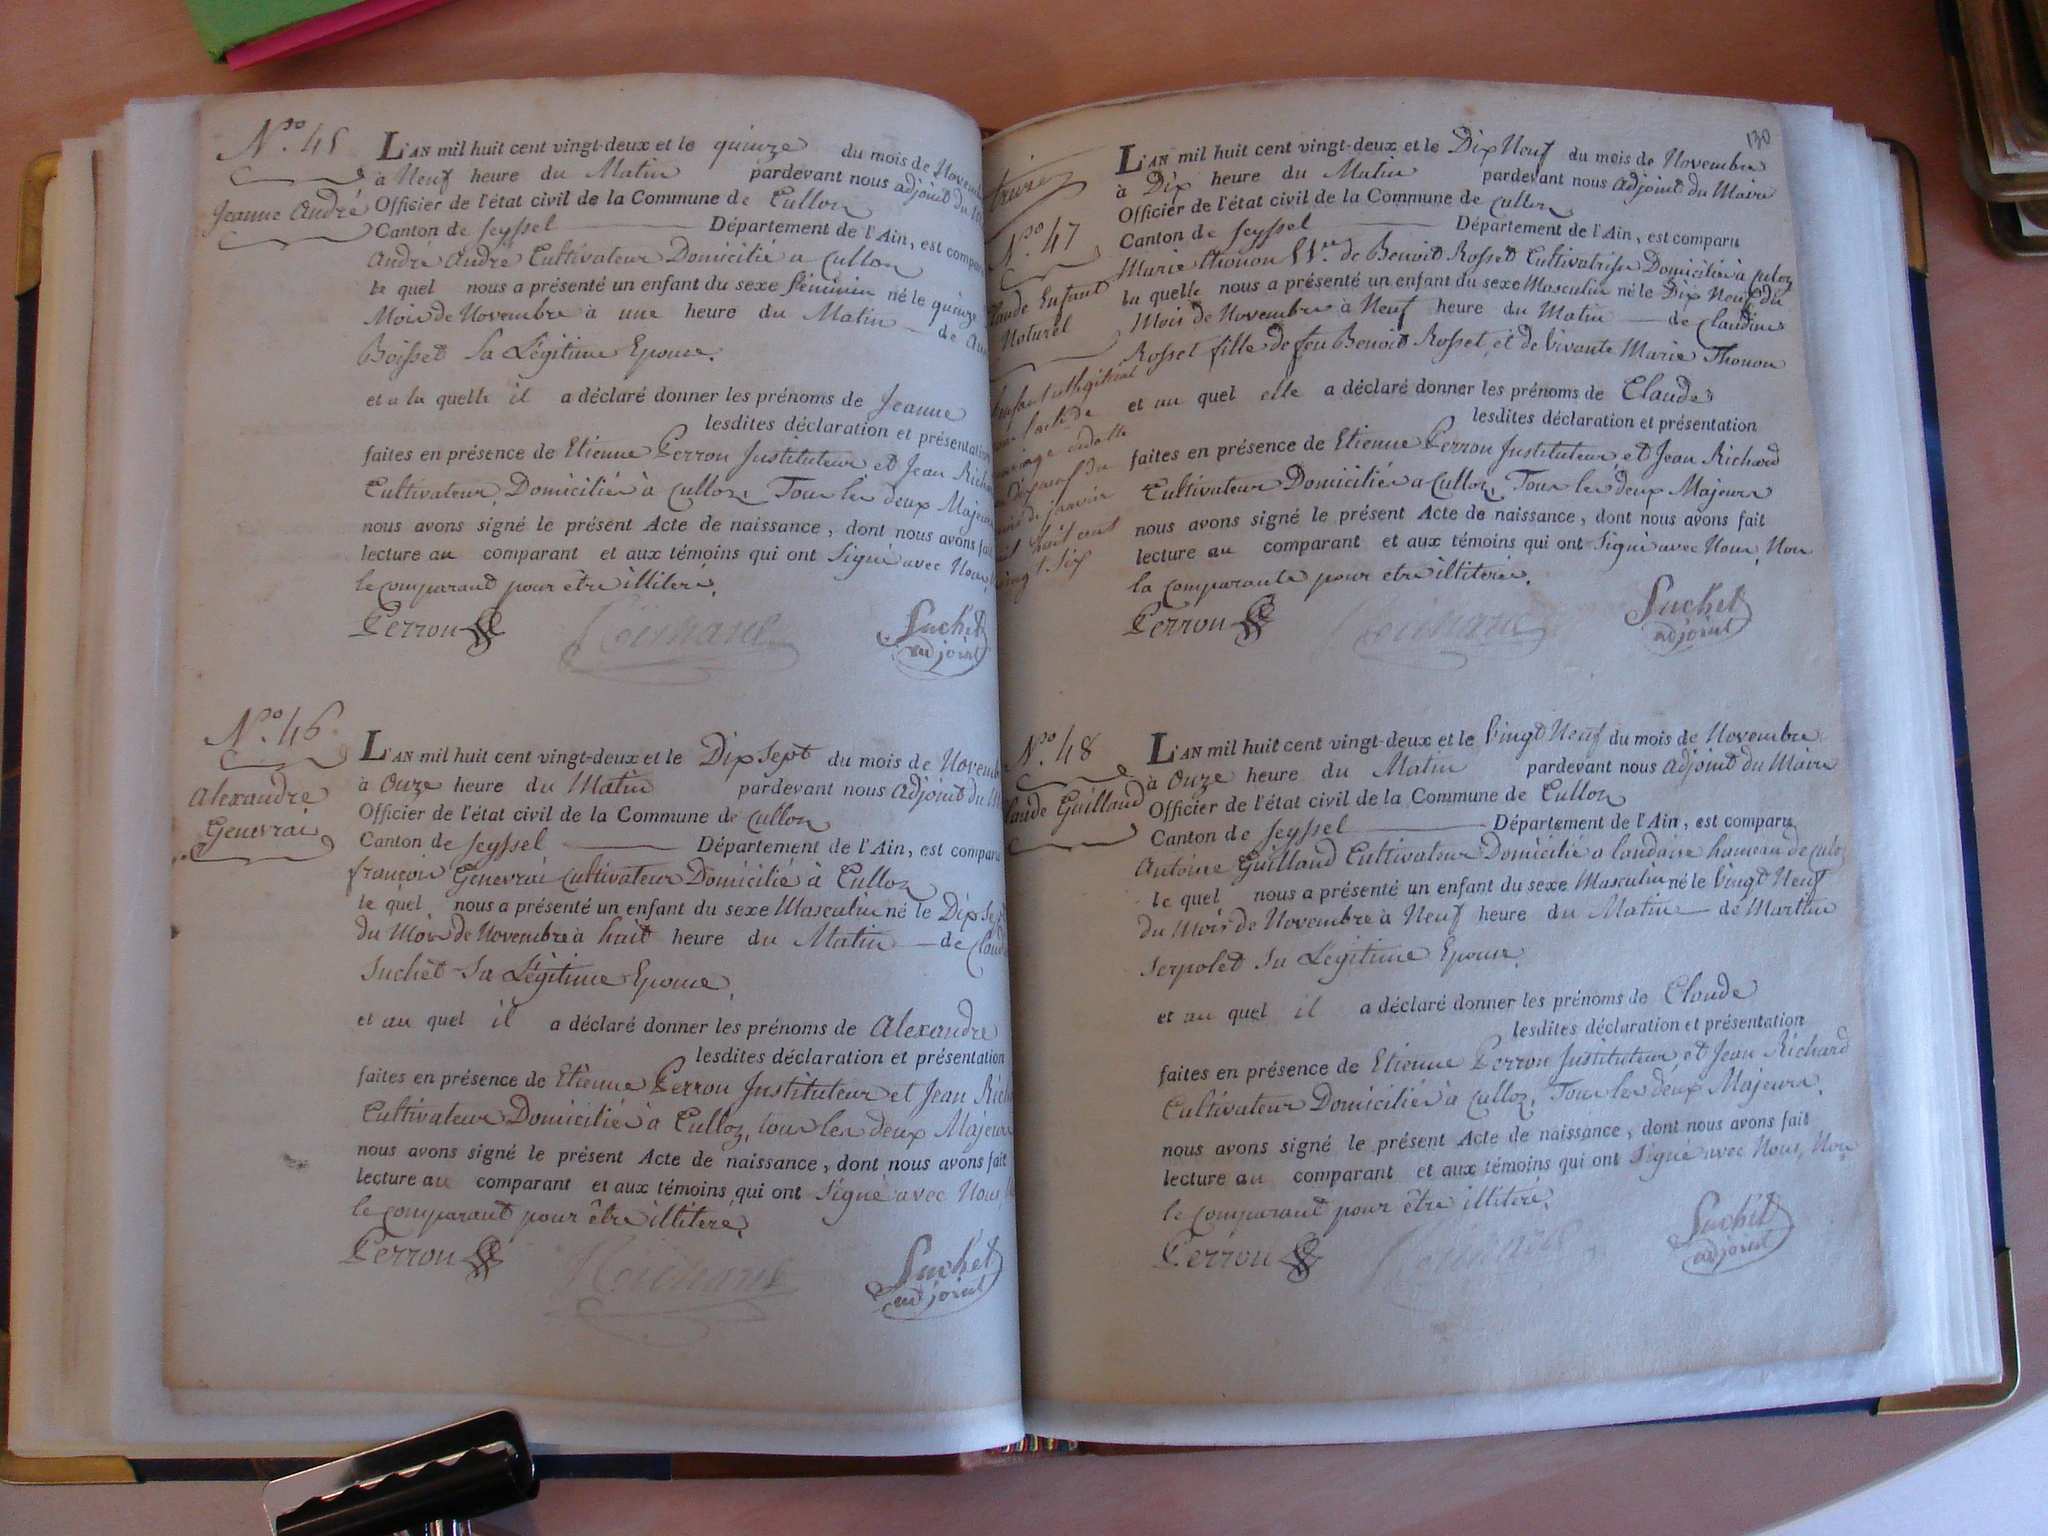 N.ro 45
Jeanne André
L'AN mil huit cent vingt-deux et le quinze du mois de Novem
à Neuf heure du Matin pardevant nous adjoint du
Officier de l'état civil de la Commune de Culloz
Canton de Seyssel Département de l'Ain, est compa
André André Cultivateur Domicilié a Culloz
le quel nous a présenté un enfant du sexe féminin né le quinze
Mois de Novembre à une heure du Matin de
Boisset Sa Légitime Epouse.
et a la quelle il a déclaré donner les prénoms de Jeanne
lesdites déclaration et présentation
faites en présence de Etienne Perron Instituteur et Jean Rich
Cultivateur Domiciliés à Culloz, Tous les deux Majeurs
nous avons signé le présent Acte de naissance, dont nous avons fait
lecture au comparant et aux témoins qui ont Signé avec Nous,
le comparant pour être illiteré.
Perron
Suchet
adjoint
N.o 46
Alexandre
Genevrai
L'AN mil huit cent vingt-deux et le Dix sept du mois de Novemb
à Onze heure du Matin pardevant nous Adjoint du
Officier de l'état civil de la Commune de Culloz
Canton de Seyssel Département de l'Ain, est comparu
françois Genevrai cultivateur Domicilié à Culloz
le quel nous a présenté un enfant du sexe Masculin né le Dix Sept
du Mois de Novembre à huit heure du Matin de Claud
Suchet Sa Légitime Epouse.
et au quel il a déclaré donner les prénoms de Alexandre
lesdites déclaration et présentation
faites en présence de Etienne Perron Instituteur et Jean Rich
Cultivateur Domiciliés à Culloz, tous les deux Majeurs
nous avons signé le présent Acte de naissance, dont nous avons fait
lecture au comparant et aux témoins qui ont Signé avec Nous,
le comparant pour être illiteré.
Perron
Suchet
adjoint
130
N.ro 47
Claude Enfant
Naturel
Enfant légitimé
par l'acte de
mariage en date
Dixneuf du
mois de janvier
mil huit cent
vingt Six
L'AN mil huit cent vingt-deux et le Dix Neuf du mois de Novembre
à Dix heure du Matin pardevant nous Adjoint du Maire
Officier de l'état civil de la Commune de Culloz
Canton de Seyssel Département de l'Ain, est comparu
Marie Thonon V.ve de Benoit Rosset Cultivatrise Domicilié à Culoz
la quelle nous a présenté un enfant du sexe Masculin né le Dix Neuf du
Mois de Novembre à Neuf heure du Matin de Claudine
Rosset fille de feu Benoit Rosset, et de vivante Marie Thonon
et au quel elle a déclaré donner les prénoms de Claude
lesdites déclaration et présentation
faites en présence de Etienne Perron Instituteur, et Jean Richard
Cultivateur Domiciliés a Culloz, Tous les deux Majeurs
nous avons signé le présent Acte de naissance, dont nous avons fait
lecture au comparant et aux témoins qui ont Signé avec Nous, Non
la comparante pour etre illiterée.
Perron
Suchet
adjoint
N.ro 48
Claude Guilland
L'AN mil huit cent vingt-deux et le Vingt Neuf du mois de Novembre
à Onze heure du Matin pardevant nous Adjoint du Maire
Officier de l'état civil de la Commune de Culloz
Canton de Seyssel Département de l'Ain, est comparu
Antoine Guilland Cultivateur Domicilié a landaise hameau de culoz
le quel nous a présenté un enfant du sexe Masculin né le Vingt Neuf
du Mois de Novembre à Neuf heure du Matin de Martine
Serpolet Sa Légitime Epouse.
et au quel il a déclaré donner les prénoms de Claude
lesdites déclaration et présentation
faites en présence de Etienne Perron Instituteur et Jean Richard
Cultivateur Domiciliés à Culloz, Tous les deux Majeurs.
nous avons signé le présent Acte de naissance, dont nous avons fait
lecture au comparant et aux témoins qui ont Signé avec Nous, Non
le comparant pour être illiteré.
Perron
Suchet
adjoint